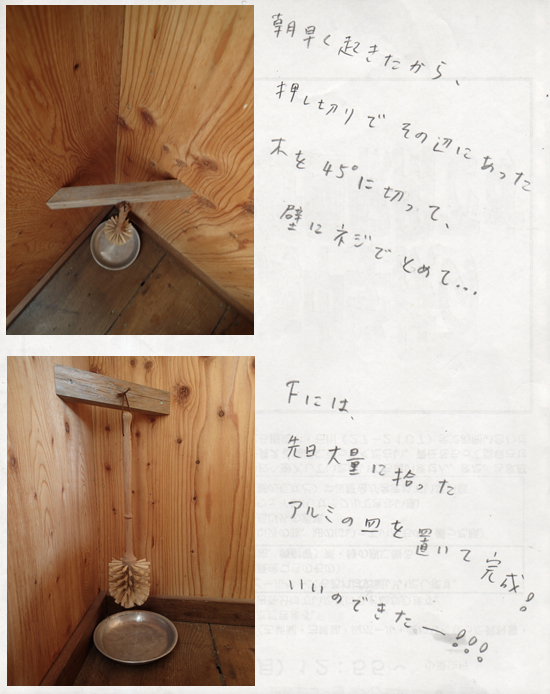 朝早く起きたから、
押し切りでその辺にあった
木を45°に切って、
壁にネジでとめて...
下には、
先日大量に拾った
アルミの皿を置いて完成!
いいのできたー!!!